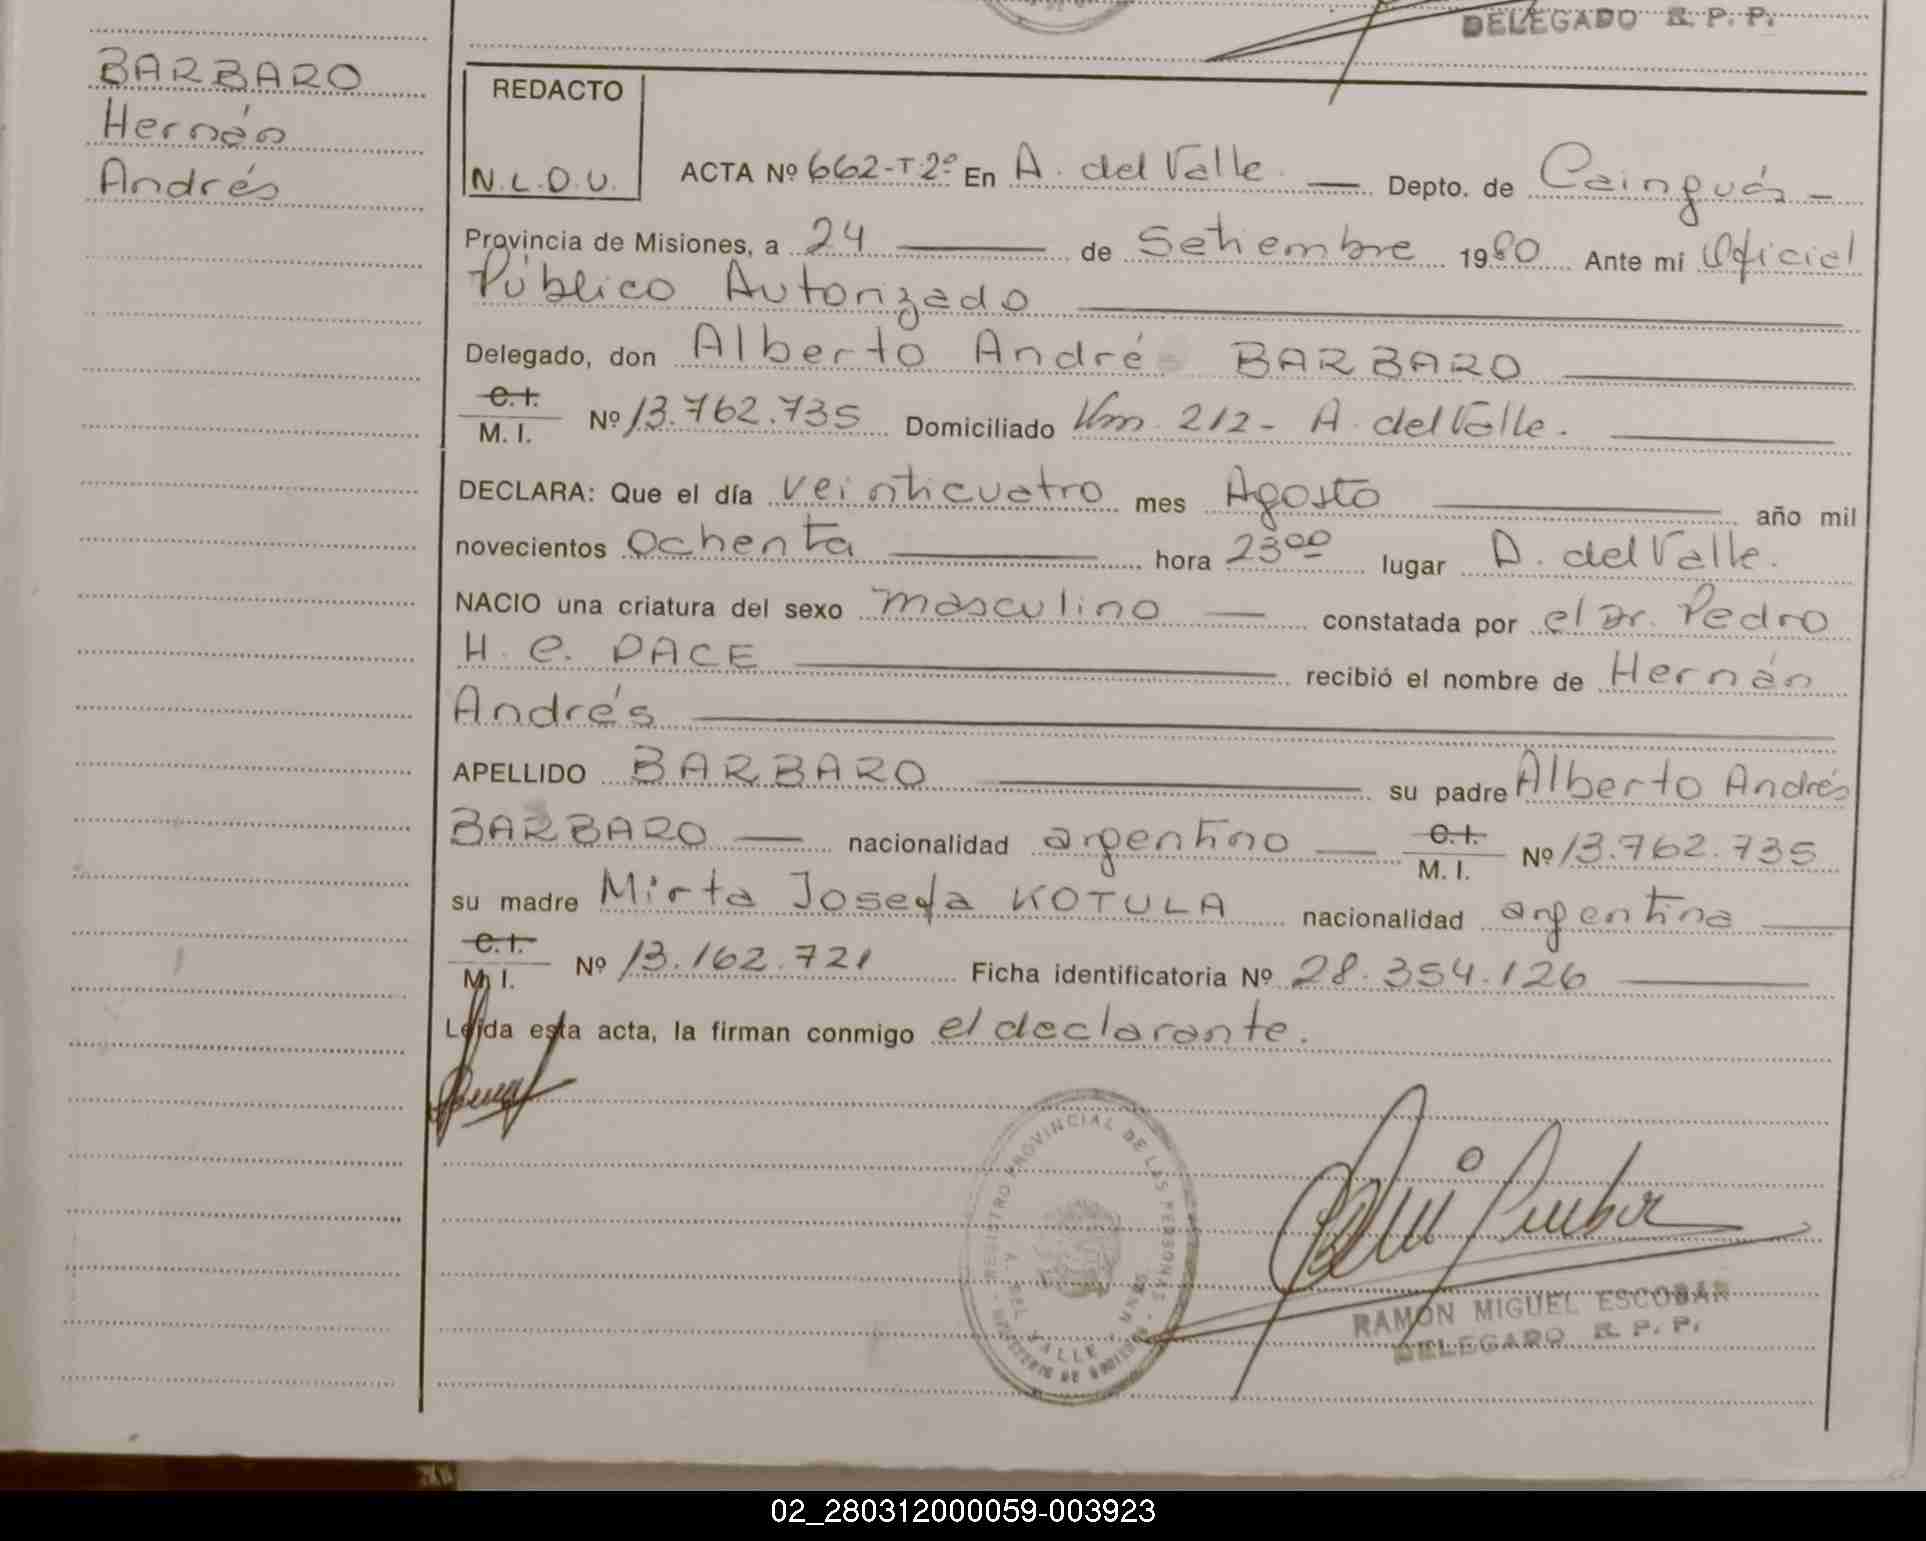 DELEGADO R. P. P.
BARBARO
Hernán
Andrés
REDACTO
N.L.D.U.
ACTA Nº 662-T-2º En A. del Valle. — Depto. de Cainguás —
Provincia de Misiones, a 24 — de Setiembre 1980 Ante mi Oficial
Público Autorizado —
Delegado, don Alberto André BARBARO —
C.I.
M. I. Nº 13.762.735 Domiciliado Km 212 - A. del Valle. —
DECLARA: Que el día veinticuatro mes Agosto — año mil
novecientos ochenta — hora 23ºº lugar A. del Valle.
NACIO una criatura del sexo masculino — constatada por el Dr. Pedro
H. C. PACE — recibió el nombre de Hernán
Andrés —
APELLIDO BARBARO — su padre Alberto Andrés
BARBARO — nacionalidad argentino — C.I. M. I. Nº 13.762.735
su madre Mirta Josefa KOTULA nacionalidad argentina —
C.I.
M. I. Nº 13.162.721 Ficha identificatoria Nº 28.354.126 —
Leída esta acta, la firman conmigo el declarante.
REGISTRO PROVINCIAL DE LAS PERSONAS
A. DEL VALLE - MNES
MINISTERIO DE GOBIERNO
RAMON MIGUEL ESCOBAR
DELEGADO R. P. P.
02_280312000059-003923